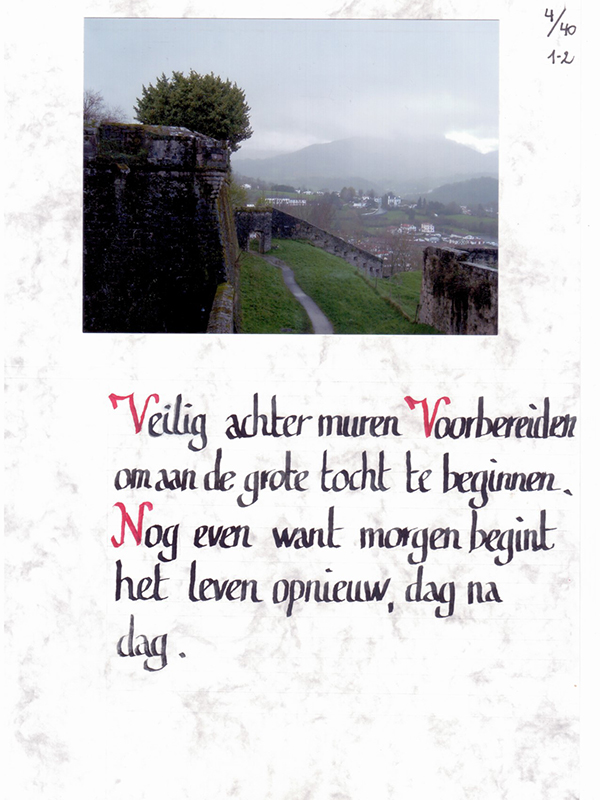 4/40
1-2
Veilig achter muren Voorbereiden
om aan de grote tocht te beginnen.
Nog even want morgen begint
het leven opnieuw, dag na
dag.